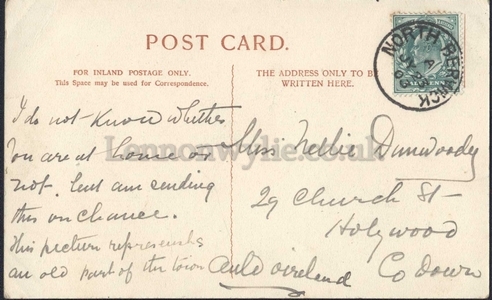 POST CARD.
FOR INLAND POSTAGE ONLY.
This Space may be used for Correspondence.
THE ADDRESS ONLY TO BE
WRITTEN HERE.
NORTH BERWICK
I do not know whether
you are at home or
not, but am sending
this on chance.
This picture represents
an old part of the town
Miss Nellie Dunwoody
29 Church St
Holywood
Co Down
Auld oireland
Lennonwylie.co.uk